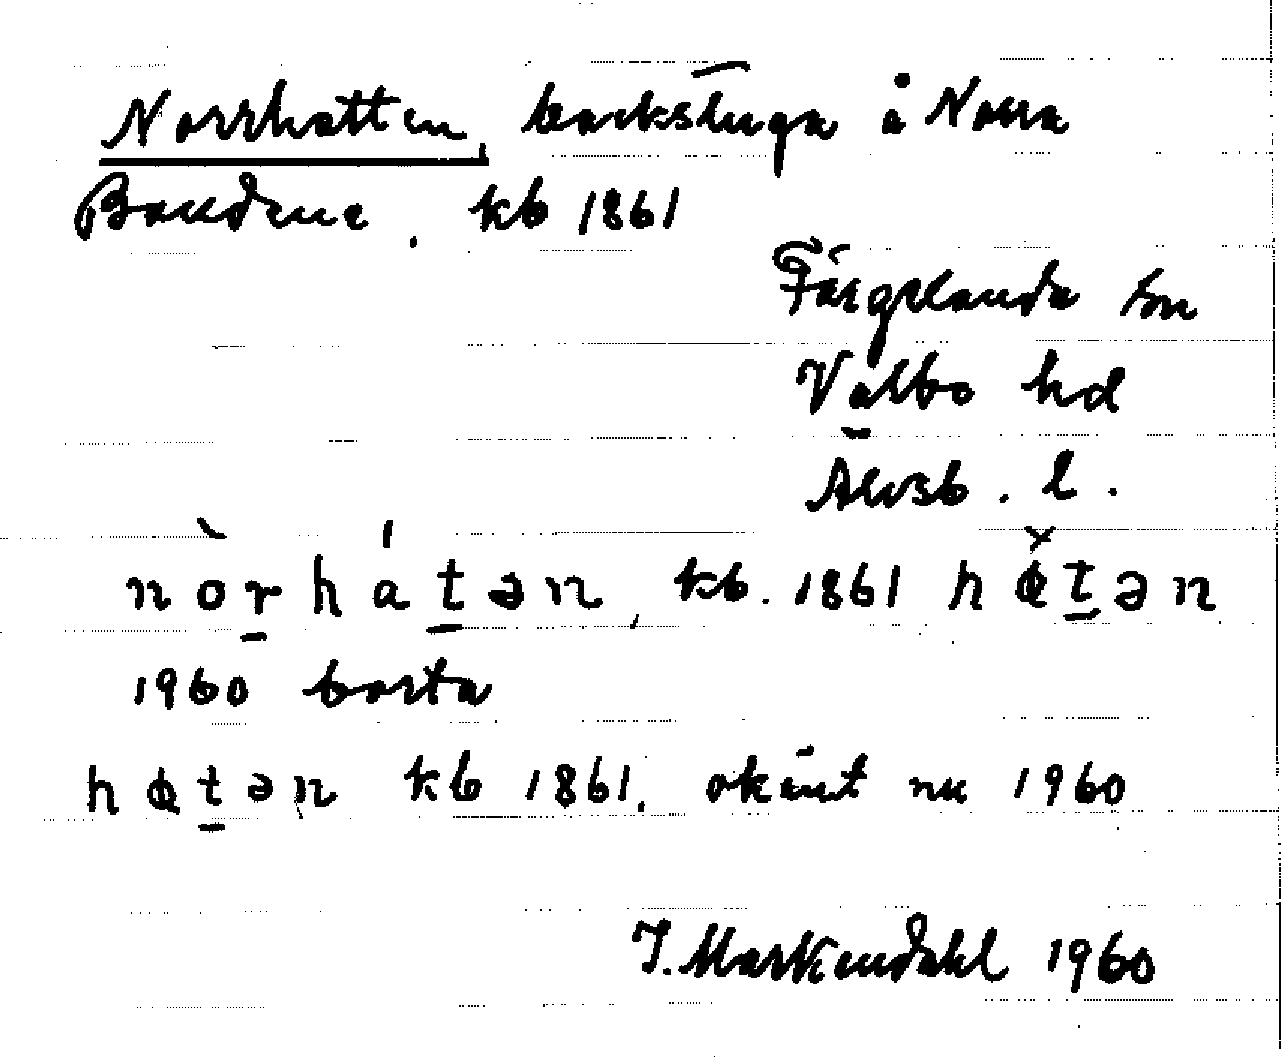 Norrhatten, backstuga å Norra
Bondene. kb 1861
Färgelanda sn
Valbo hd
Älvsb. l.
nòrhátən, kb. 1861 hatən
1960 borta
hatən kb 1861, okänt nu 1960
J. Markendahl 1960